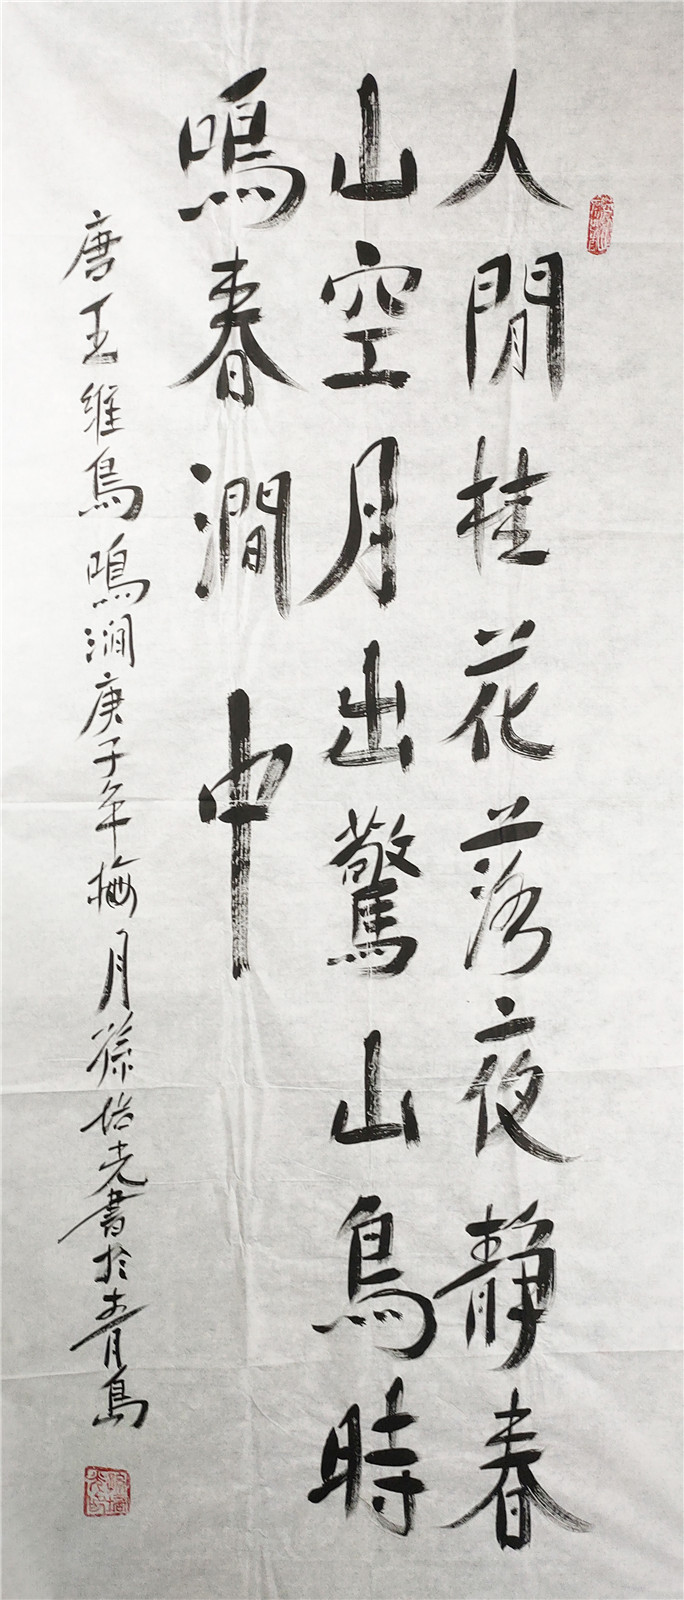 人閒桂花落夜靜春
山空月出驚山鳥時
鳴春澗中
唐王維鳥鳴澗庚子年梅月孫培光書於青島